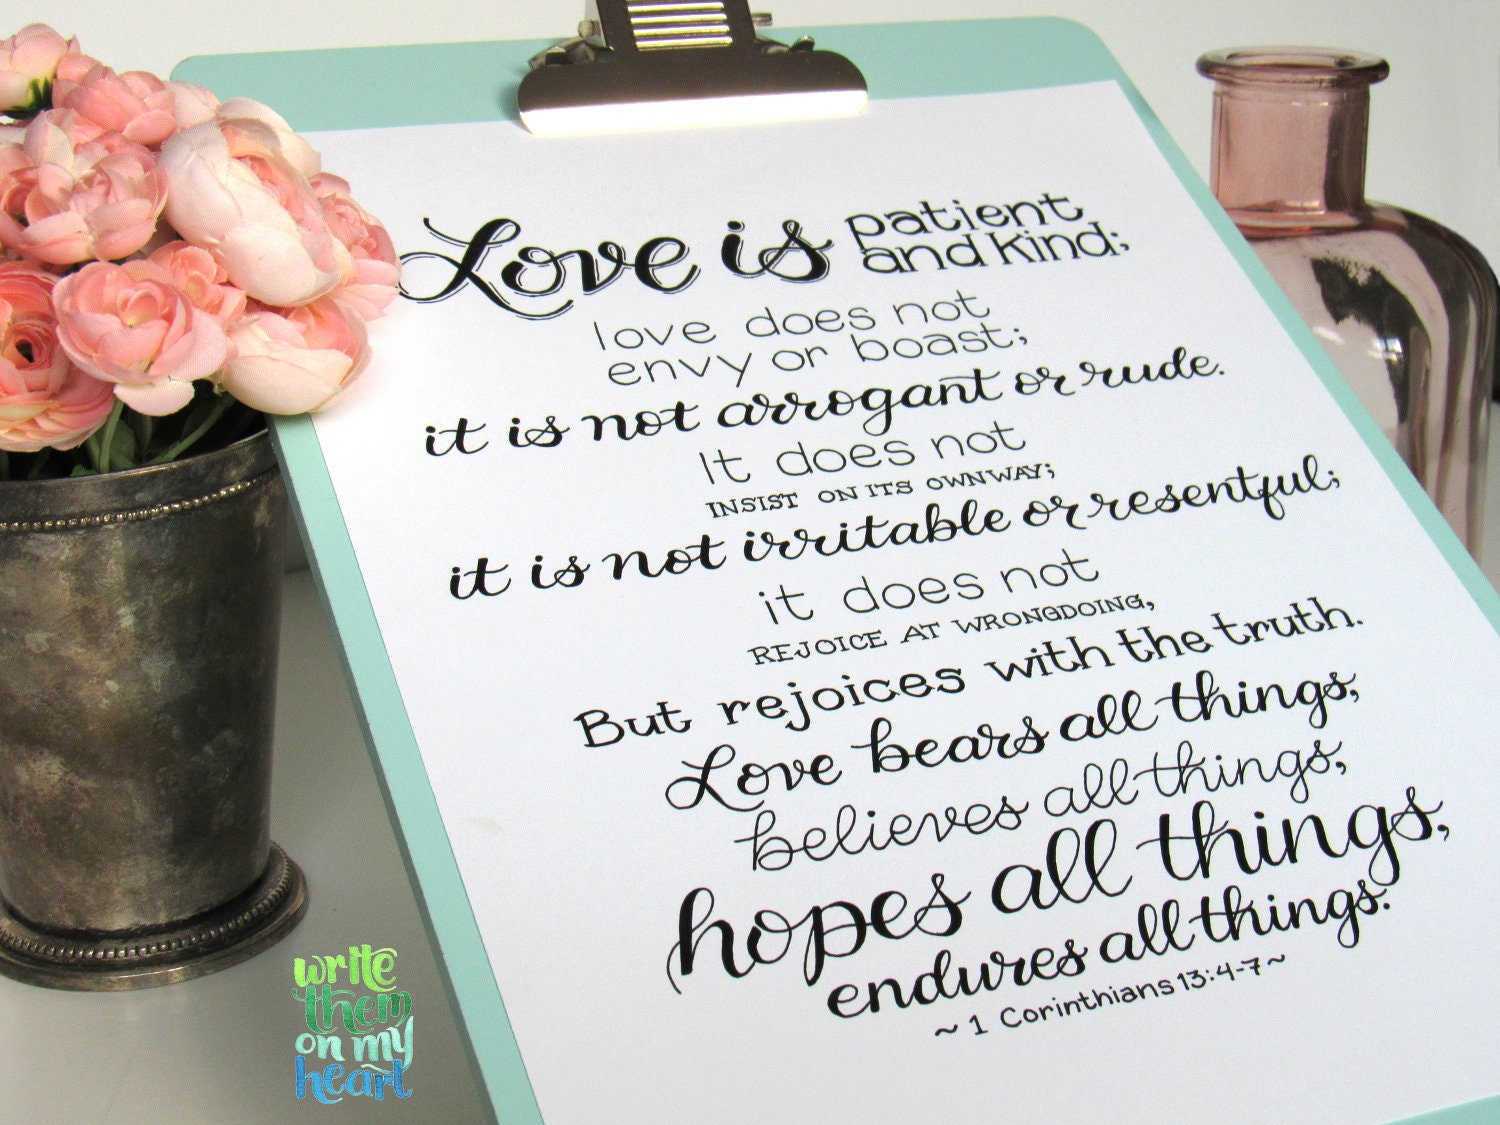 Love is patient
and kind;
love does not
envy or boast;
it is not arrogant or rude.
It does not
INSIST ON ITS OWN WAY;
it is not irritable or resentful;
it does not
REJOICE AT WRONGDOING,
But rejoices with the truth.
Love bears all things,
believes all things,
hopes all things,
endures all things.
~ 1 Corinthians 13:4-7 ~
write
them
on my
heart